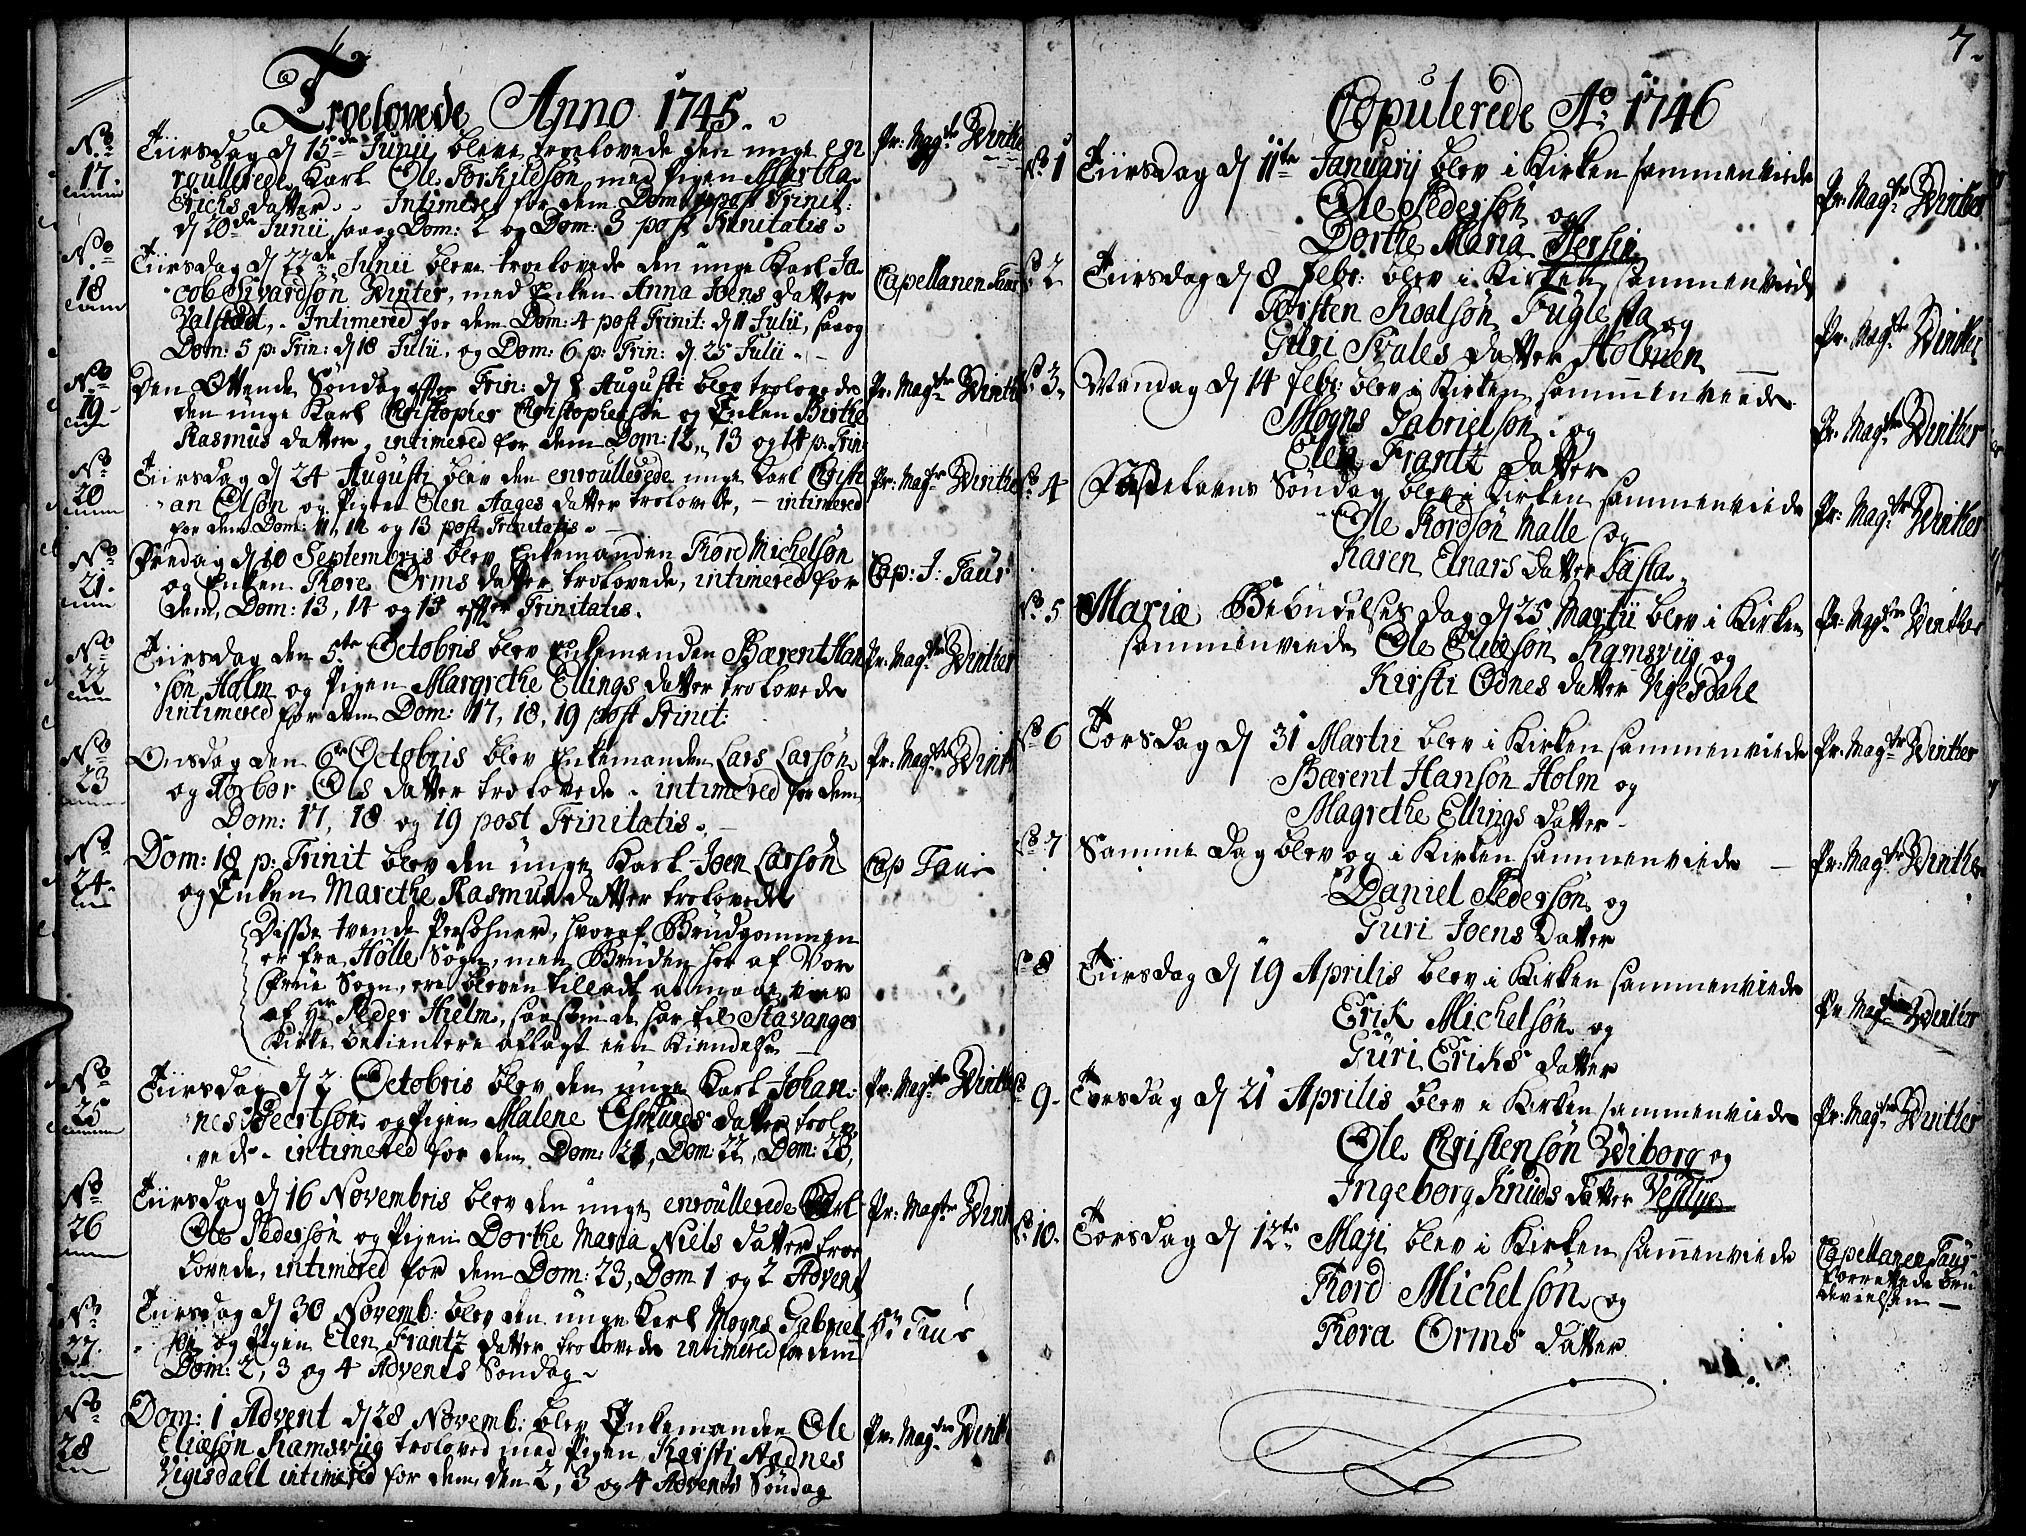 Troelovede Anno 1745.
No 17. Tiirsdag d 15de Junii bleve troelovede den unge en
roullerede Karl Ole Torkildsøn med Pigen Martha
Erichs datter. Intimeret for dem Dom: 1 post Trinit:
d 20de Junii saa og Dom: 2 og Dom: 3 post Trinitatis.
Pr: Magtr Winther
No 18 Tiirsdag d 22de Junii bleve troelovede den unge Karl Ja
cob Sivardsøn Winter, med Enken Anna Joens datter
Valstad, Intimered for dem Dom: 4 post Trinit: d 11 Julii, saa og
Dom: 5 p: Trin: d 18 Julii, og Dom: 6 p: Trin: d 25 Julii.
Capellanen Taur
No 19 Den Ottende Søndag efter Trin: d 8 Augusti blev trolovede
den unge Karl Christopher Christophersøn og Enken Birthe
Rasmus datter, intimered for dem Dom: 12, 13 og 14 p: Trin:
Pr: Magtr Winther
No 20 Tiirsdag d 24 Augusti blev den enroullerede unge Karl Christi
an Olson og Pigen Elen Aages datter trolovede, – intimered
for dem Dom: 11, 12 og 13 post Trinitatis. –
Pr: Magtr Winther
No 21. Fredag d 10 Septembris blev Enkemanden Tord Michelsøn
og Enken Tore Orms datter trolovede, intimered for
dem, Dom: 13, 14 og 15 efter Trinitatis.
Cap: J: Taur
No 22 Tiirsdag den 5te Octobris blev Enkemanden Bærent Han
søn Holm og Pigen Margrethe Ellings datter trolovede
intimered for dem Dom: 17, 18, 19 post Trinit:
Pr: Magtr Winther
No 23 Onsdag den 6te Octobris blev Enkemanden Lars Larsøn
og Torbor Ols datter trolovede. intimered for dem
Dom: 17, 18 og 19 post Trinitatis.
Pr: Magtr Winth
No 24. Dom: 18 p: Trinit blev den unge Karl Joen Larsøn
og Enken Marethe Rasmus datter trolovede
Cap Taur
Disse tvende Persohner, hvoraf Brudgommen
er fra Hølle Sogn, men Bruden her af Vor
Frue Sogn, ere bleven tilladt at maae vies
af Hr Peder Hielm, saasom de har til Stavanger
Kirke betientere aflagt een Kiendelse
No 25 Tiirsdag d 2 Octobris blev den unge Karl Johan:
nes Geertsøn og Pigen Malene Esmunds datter trolo
vede. intimered for dem Dom: 21, Dom: 22, Dom: 23,
Pr: Magtr Winth
No 26 Tiirsdag d 16 Novembris blev den unge enroullerede Karl
Ole Pedersøn og Pigen Dorthe Maria Niels datter troe
lovede, intimered for dem Dom: 23, Dom 1 og 2 Advent
Pr: Magtr Wint
No 27. Tiirsdag d 30 Novemb: blev den unge Karl Mogns Gabriel
søn og Pigen Elen Frantz datter trolovede intimered for dem
Dom: 2, 3 og 4 Advents Søndag
Taur
No 28 Dom: 1 Advent d 28 Novemb: blev Enkemanden Ole
Eliæsøn Ramsvüg troloved med Pigen Kirsti Aadnes
Vigisdall intimered for dem den 2, 3 og 4 Advents Søndag
Pr: Magtr Wint
7.
Copulerede Ao 1746
No 1 Tiirsdag d 11te Januarij blev i Kirken sammenviede
Ole Pedersøn og
Dorthe Maria Hersin
Pr: Magtr Winther
No 2 Tiirsdag d 8 febr: blev i Kirken sammenviede
Torsten Roalsøn Fuglesta og
Guri Tvales datter Holmen
Pr: Magtr Winther
No 3. Mandag d 14 febr: blev i Kirken sammenviede
Mogns Gabrielsøn og
Elen Frantz datter
Pr: Magtr Winther
No 4 Fastelavns Søndag blev i Kirken sammenviede
Ole Tordsøn Malle og
Karen Einars datter Tasta.
Pr: Magtr Winther
No 5 Mariæ Bebudelses dag d 25 Martii blev i Kirken
sammenviede Ole Eliæsøn Ramsvüg og
Kirsti Odnes datter Vigesdahl
Pr: Magtr Winther
No 6 Torsdag d 31 Martii blev i Kirken sammenviede
Bærent Hansøn Holm og
Magrethe Ellings datter
Pr: Magtr Winther
No 7 Samme dag blev og i Kirken sammenviede –
Daniel Pedersøn og
Guri Joens datter
Pr: Magtr Winther
No 8 Tiirsdag d 19 Aprilis blev i Kirken sammenviede
Erik Michelsøn og
Guri Eriks datter
Pr Magtr Winther
No 9. Torsdag d 21 Aprilis blev i Kirken sammenviede
Ole Christensøn Wiborg og
Ingeborg Knuds datter Vestlye
Pr: Magtr Winther
No 10. Torsdag d 12te Maji blev i Kirken sammenviede
Tord Michelsøn og
Tora Orms datter
Capellanen Taur
forrettede bru
devielsen –